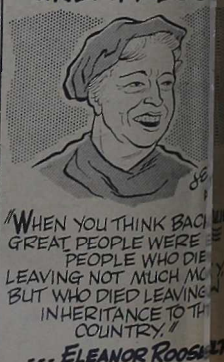 "WHEN YOU THINK BAC
GREAT PEOPLE WERE
PEOPLE WHO DIE
LEAVING NOT MUCH MO
BUT WHO DIED LEAVING
INHERITANCE TO TH
COUNTRY."
... ELEANOR ROOS